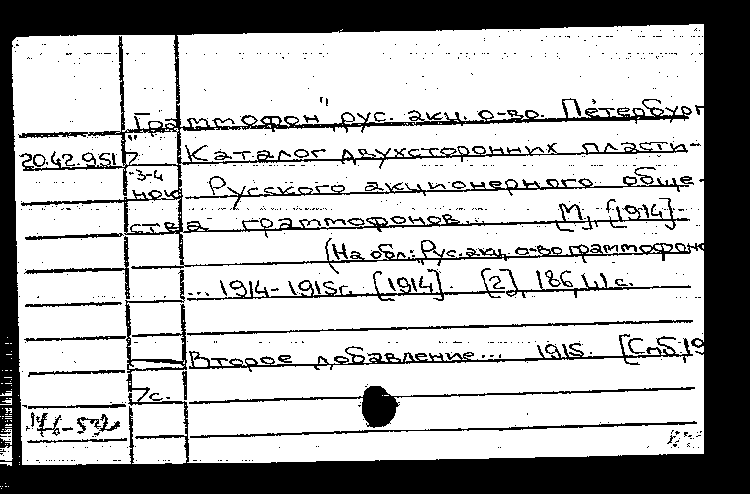 "Граммофон", рус. акц. о-во. Петербург
20.42.951
7
-3-4
Каталог двухсторонних пласти-
нок Русского акционерного обще-
ства граммофонов... [М], [1914].
(На обл.: Рус. акц. о-во граммофоно
... 1914-1915г. [1914]. [2], 186, с.
Второе добавление... 1915. [Спб, 19
7с.